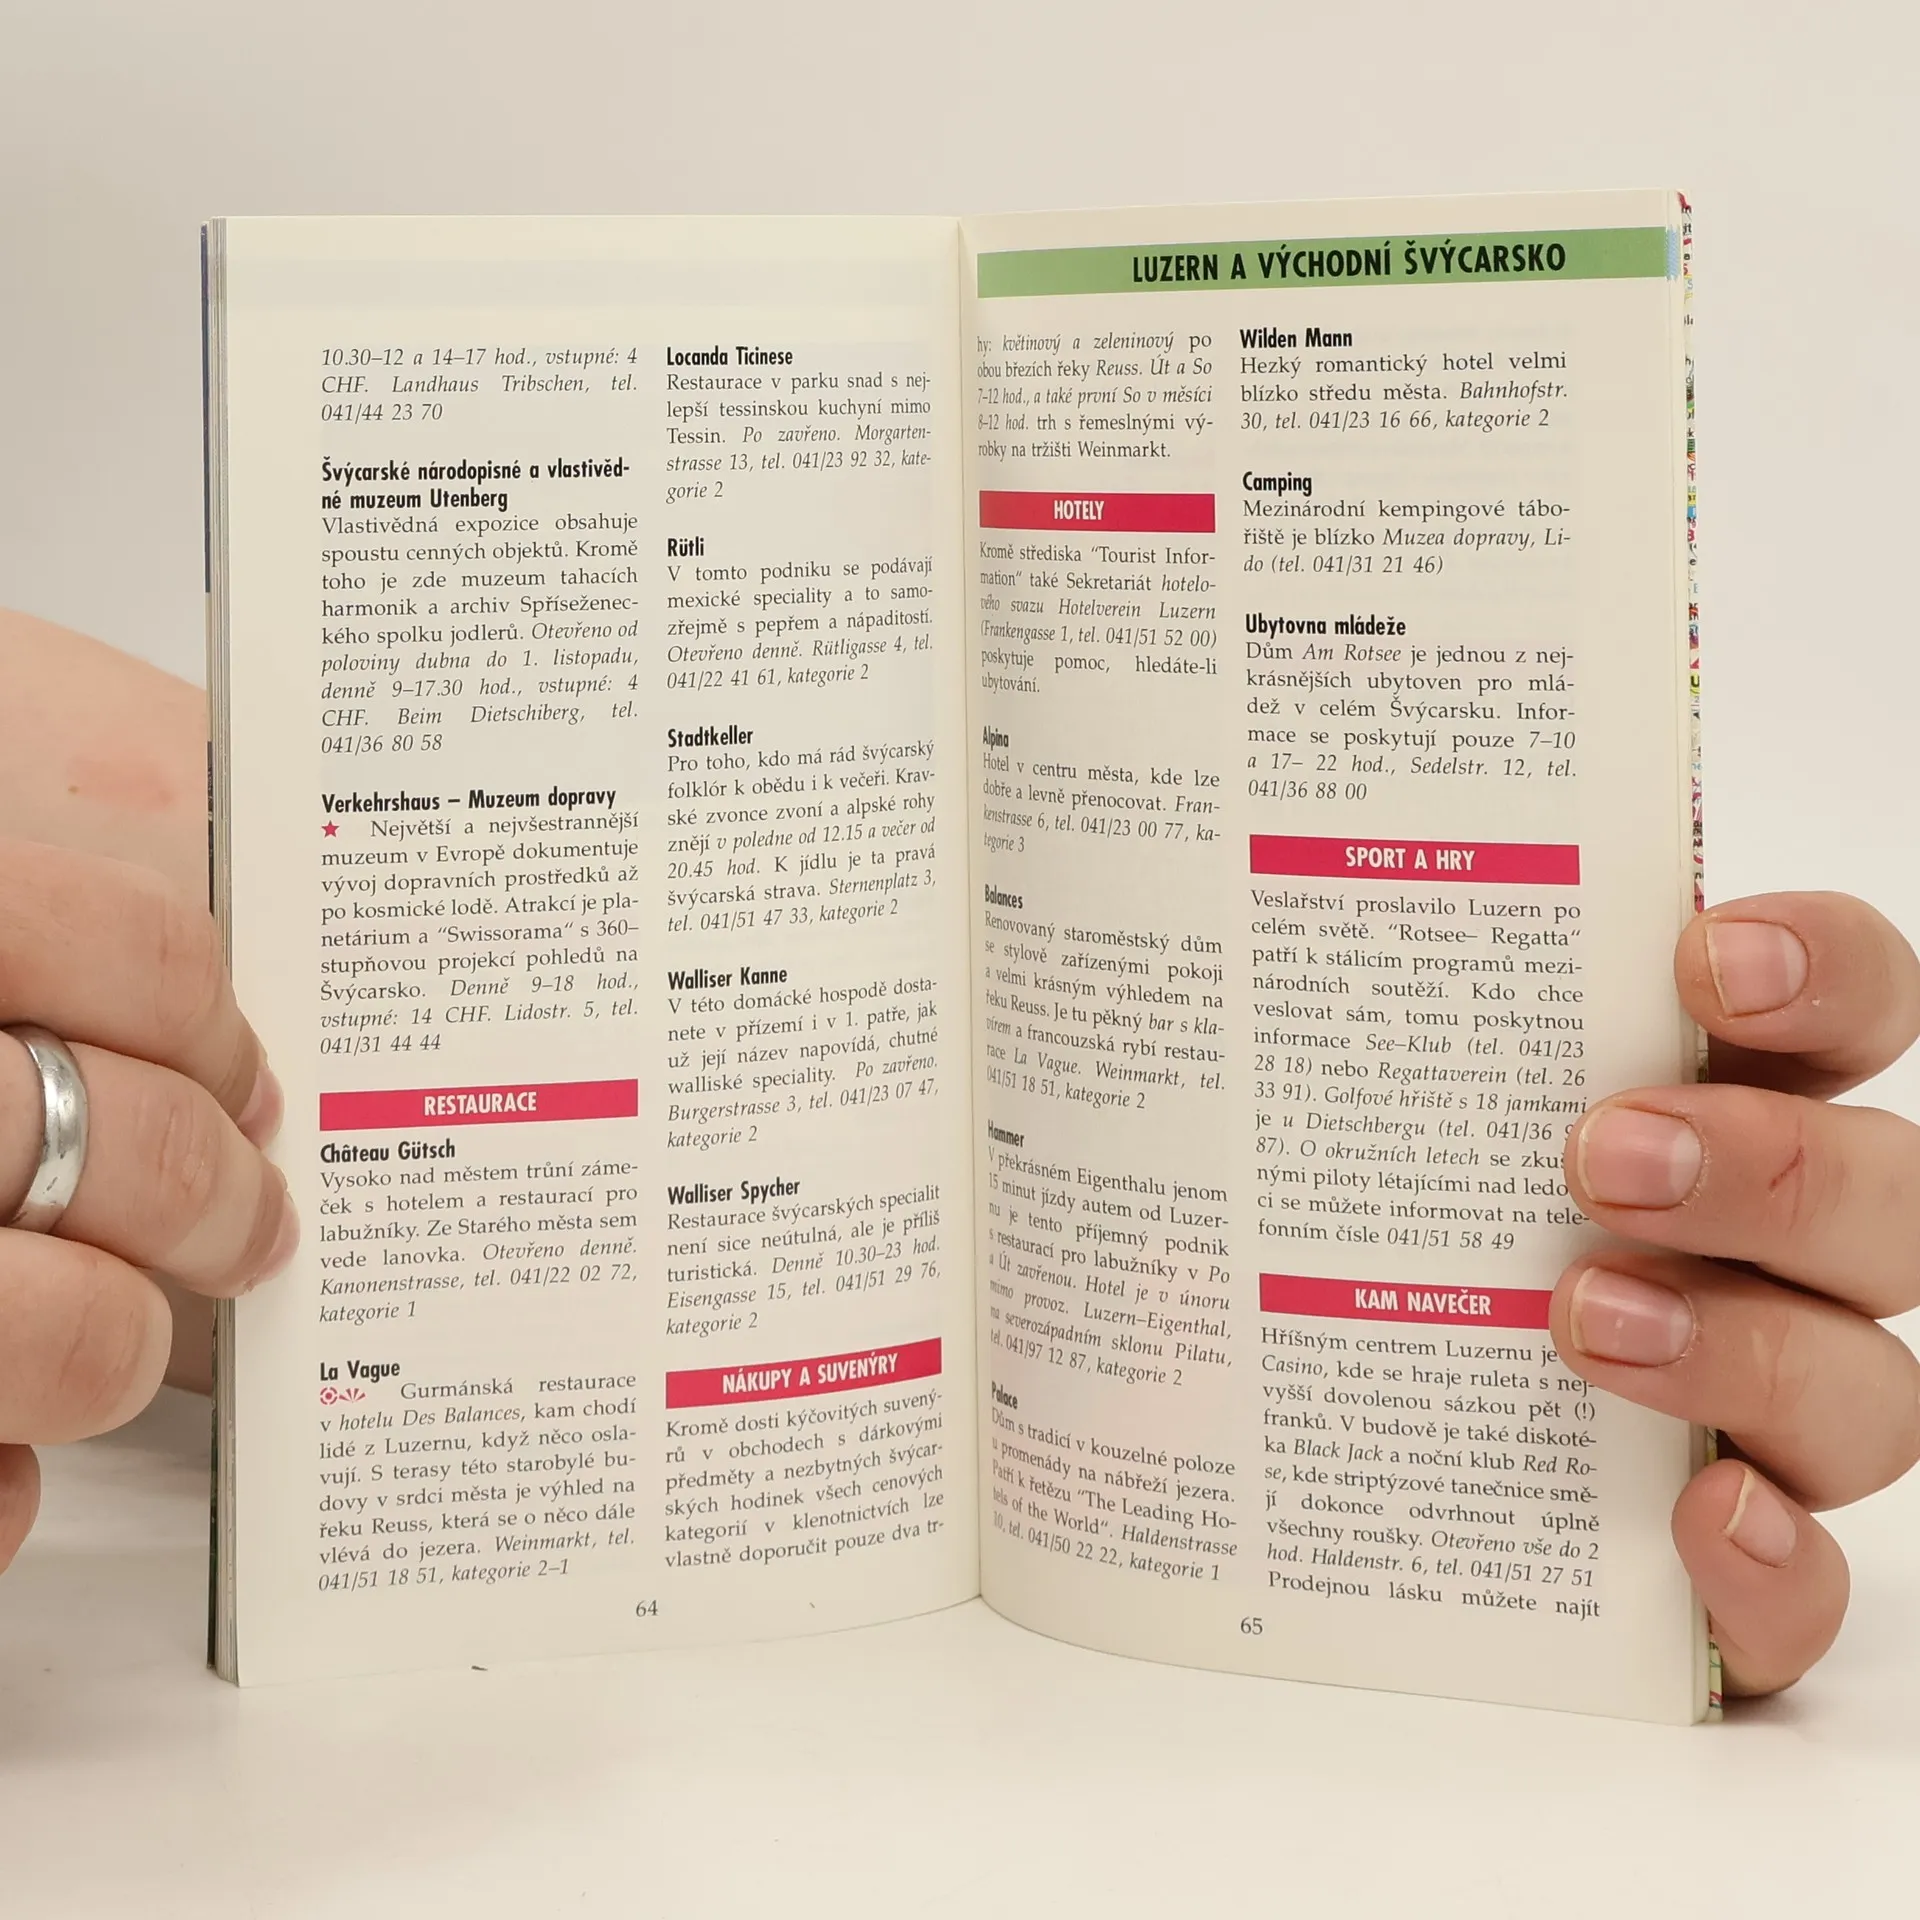 10.30–12 a 14–17 hod., vstupné: 4
CHF. Landhaus Tribschen, tel.
041/44 23 70
Švýcarské národopisné a vlastivěd-
né muzeum Utenberg
Vlastivědná expozice obsahuje
spoustu cenných objektů. Kromě
toho je zde muzeum tahacích
harmonik a archiv Spříseženec-
kého spolku jodlerů. Otevřeno od
poloviny dubna do 1. listopadu,
denně 9–17.30 hod., vstupné: 4
CHF. Beim Dietschiberg, tel.
041/36 80 58
Verkehrshaus – Muzeum dopravy
Největší a nejvšestrannější
muzeum v Evropě dokumentuje
vývoj dopravních prostředků až
po kosmické lodě. Atrakcí je pla-
netárium a "Swissorama“ s 360–
stupňovou projekcí pohledů na
Švýcarsko. Denně 9–18 hod.,
vstupné: 14 CHF. Lidostr. 5, tel.
041/31 44 44
RESTAURACE
Château Gütsch
Vysoko nad městem trůní záme-
ček s hotelem a restaurací pro
labužníky. Ze Starého města sem
vede lanovka. Otevřeno denně.
Kanonenstrasse, tel. 041/22 02 72,
kategorie 1
La Vague
Gurmánská restaurace
v hotelu Des Balances, kam chodí
lidé z Luzernu, když něco osla-
vují. S terasy této starobylé bu-
dovy v srdci města je výhled na
řeku Reuss, která se o něco dále
vlévá do jezera. Weinmarkt, tel.
041/51 18 51, kategorie 2–1
Locanda Ticinese
Restaurace v parku snad s nej-
lepší tessinskou kuchyní mimo
Tessin. Po zavřeno. Morgarten-
strasse 13, tel. 041/23 92 32, kate-
gorie 2
Rütli
V tomto podniku se podávají
mexické speciality a to samo-
zřejmě s pepřem a nápaditostí.
Otevřeno denně. Rütligasse 4, tel.
041/22 41 61, kategorie 2
Stadtkeller
Pro toho, kdo má rád švýcarský
folklór k obědu i k večeři. Krav-
ské zvonce zvoní a alpské rohy
znějí v poledne od 12.15 a večer od
20.45 hod. K jídlu je ta pravá
švýcarská strava. Sternenplatz 3,
tel. 041/51 47 33, kategorie 2
Walliser Kanne
V této domácké hospodě dosta-
nete v přízemí i v 1. patře, jak
už její název napovídá, chutné
walliské speciality. Po zavřeno.
Burgerstrasse 3, tel. 041/23 07 47,
kategorie 2
Walliser Spycher
Restaurace švýcarských specialit
není sice neútulná, ale je příliš
turistická. Denně 10.30–23 hod.
Eisengasse 15, tel. 041/51 29 76,
kategorie 2
NÁKUPY A SUVENÝRY
Kromě dosti kýčovitých suvený-
rů v obchodech s dárkovými
předměty a nezbytných švýcar-
ských hodinek všech cenových
kategorií v klenotnictvích lze
vlastně doporučit pouze dva tr-
64
LUZERN A VÝCHODNÍ ŠVÝCARSKO
hy: květinový a zeleninový po
obou březích řeky Reuss. Út a So
7–12 hod., a také první So v měsíci
8–12 hod. trh s řemeslnými vý-
robky na tržišti Weinmarkt.
HOTELY
Kromě střediska "Tourist Infor-
mation“ také Sekretariát hotelo-
vého svazu Hotelverein Luzern
(Frankengasse 1, tel. 041/51 52 00)
poskytuje pomoc, hledáte-li
ubytování.
Alpina
Hotel v centru města, kde lze
dobře a levně přenocovat. Fran-
kenstrasse 6, tel. 041/23 00 77, ka-
tegorie 3
Balances
Renovovaný staroměstský dům
se stylově zařízenými pokoji
a velmi krásným výhledem na
řeku Reuss. Je tu pěkný bar s kla-
vírem a francouzská rybí restau-
race La Vague. Weinmarkt, tel.
041/51 18 51, kategorie 2
Hammer
V překrásném Eigenthalu jenom
15 minut jízdy autem od Luzer-
nu je tento příjemný podnik
s restaurací pro labužníky v Po
a Út zavřenou. Hotel je v únoru
mimo provoz. Luzern–Eigenthal,
na severozápadním sklonu Pilatu,
tel. 041/97 12 87, kategorie 2
Palace
Dům s tradicí v kouzelné poloze
u promenády na nábřeží jezera.
Patří k řetězu "The Leading Ho-
tels of the World“. Haldenstrasse
10, tel. 041/50 22 22, kategorie 1
Wilden Mann
Hezký romantický hotel velmi
blízko středu města. Bahnhofstr.
30, tel. 041/23 16 66, kategorie 2
Camping
Mezinárodní kempingové tábo-
řiště je blízko Muzea dopravy, Li-
do (tel. 041/31 21 46)
Ubytovna mládeže
Dům Am Rotsee je jednou z nej-
krásnějších ubytoven pro mlá-
dež v celém Švýcarsku. Infor-
mace se poskytují pouze 7–10
a 17– 22 hod., Sedelstr. 12, tel.
041/36 88 00
SPORT A HRY
Veslařství proslavilo Luzern po
celém světě. "Rotsee– Regatta“
patří k stálicím programů mezi-
národních soutěží. Kdo chce
veslovat sám, tomu poskytnou
informace See–Klub (tel. 041/23
28 18) nebo Regattaverein (tel. 26
33 91). Golfové hřiště s 18 jamkami
je u Dietschbergu (tel. 041/36
87). O okružních letech se zku
nými piloty létajícími nad ledo
ci se můžete informovat na tele-
fonním čísle 041/51 58 49
KAM NAVEČER
Hříšným centrem Luzernu je
Casino, kde se hraje ruleta s nej-
vyšší dovolenou sázkou pět (!)
franků. V budově je také diskoté-
ka Black Jack a noční klub Red Ro-
se, kde striptýzové tanečnice smě-
jí dokonce odvrhnout úplně
všechny roušky. Otevřeno vše do 2
hod. Haldenstr. 6, tel. 041/51 27 51
Prodejnou lásku můžete najít
65